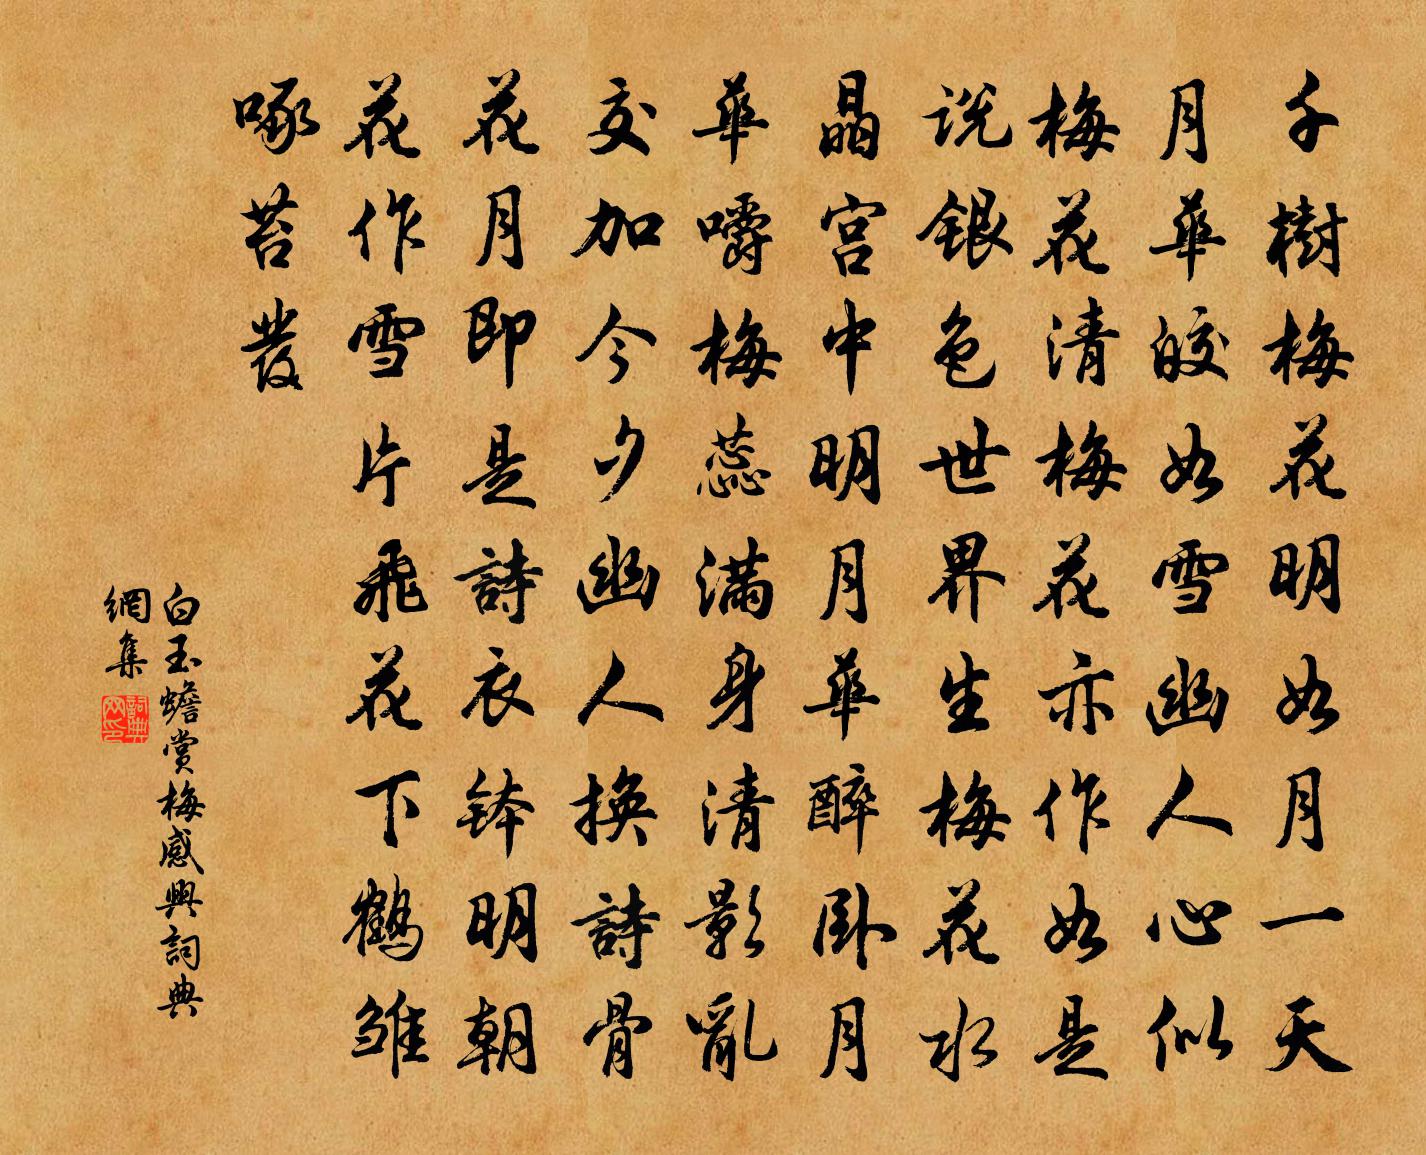 千樹梅花明如月一天
月華皎如雪幽人心似
梅花清梅花亦作如是
說銀色世界生梅花水
晶宮中明月華醉臥月
華嚼梅蕊滿身清影亂
交加今夕幽人換詩骨
花月即是詩衣鉢明朝
花作雪片飛花下鶴雏
啄苔發
白玉蟾賞梅感興詞典
網集
詞典
网印